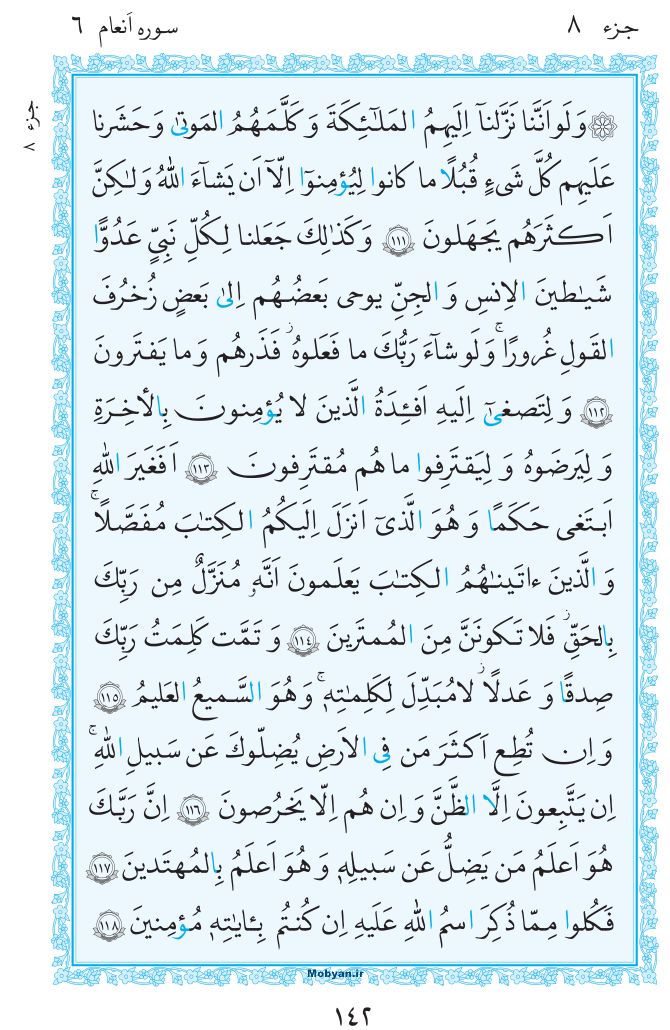 جزء ٨
سوره اَنعام ٦
جزء ٨
وَلَو اَنَّنا نَزَّلنآ اِلَيهِمُ المَلٰٓئِكَةَ وَ كَلَّمَهُمُ المَوتىٰ وَ حَشَرنا
عَلَيهِم كُلَّ شَىءٍ قُبُلًا ما كانوا لِيُؤمِنوٓا اِلّآ اَن يَشآءَ اللهُ وَلٰكِنَّ
اَكثَرَهُم يَجهَلونَ ﴿١١١﴾ وَ كَذٰلِكَ جَعَلنا لِكُلِّ نَبِىٍّ عَدُوًّا
شَيـٰطينَ الاِنسِ وَ الجِنِّ يوحى بَعضُهُم اِلىٰ بَعضٍ زُخرُفَ
القَولِ غُرورًا ۚ وَ لَو شآءَ رَبُّكَ ما فَعَلوهُ ۖ فَذَرهُم وَ ما يَفتَرونَ
﴿١١٢﴾ وَ لِتَصغىٰٓ اِلَيهِ اَفـِٔدَةُ الَّذينَ لا يُؤمِنونَ بِالأخِرَةِ
وَ لِيَرضَوهُ وَ لِيَقتَرِفوا ما هُم مُقتَرِفونَ ﴿١١٣﴾ اَفَغَيرَ اللهِ
اَبتَغى حَكَمًا وَ هُوَ الَّذىٓ اَنزَلَ اِلَيكُمُ الكِتٰبَ مُفَصَّلًا ۚ
وَ الَّذينَ ءاتَينٰهُمُ الكِتٰبَ يَعلَمونَ اَنَّهُۥ مُنَزَّلٌ مِن رَبِّكَ
بِالحَقِّ ۖ فَلا تَكونَنَّ مِنَ المُمتَرينَ ﴿١١٤﴾ وَ تَمَّت كَلِمَتُ رَبِّكَ
صِدقًا وَ عَدلًا ۖ لا مُبَدِّلَ لِكَلِمٰتِهٖ ۚ وَ هُوَ السَّميعُ العَليمُ ﴿١١٥﴾
وَ اِن تُطِع اَكثَرَ مَن فِى الاَرضِ يُضِلّوكَ عَن سَبيلِ اللهِ ۚ
اِن يَتَّبِعونَ اِلَّا الظَّنَّ وَ اِن هُم اِلّا يَخرُصونَ ﴿١١٦﴾ اِنَّ رَبَّكَ
هُوَ اَعلَمُ مَن يَضِلُّ عَن سَبيلِهٖ وَ هُوَ اَعلَمُ بِالمُهتَدينَ ﴿١١٧﴾
فَكُلوا مِمّا ذُكِرَ اسمُ اللهِ عَلَيهِ اِن كُنتُم بِـٔايٰتِهٖ مُؤمِنينَ ﴿١١٨﴾
Mobyan.ir
١٤٢